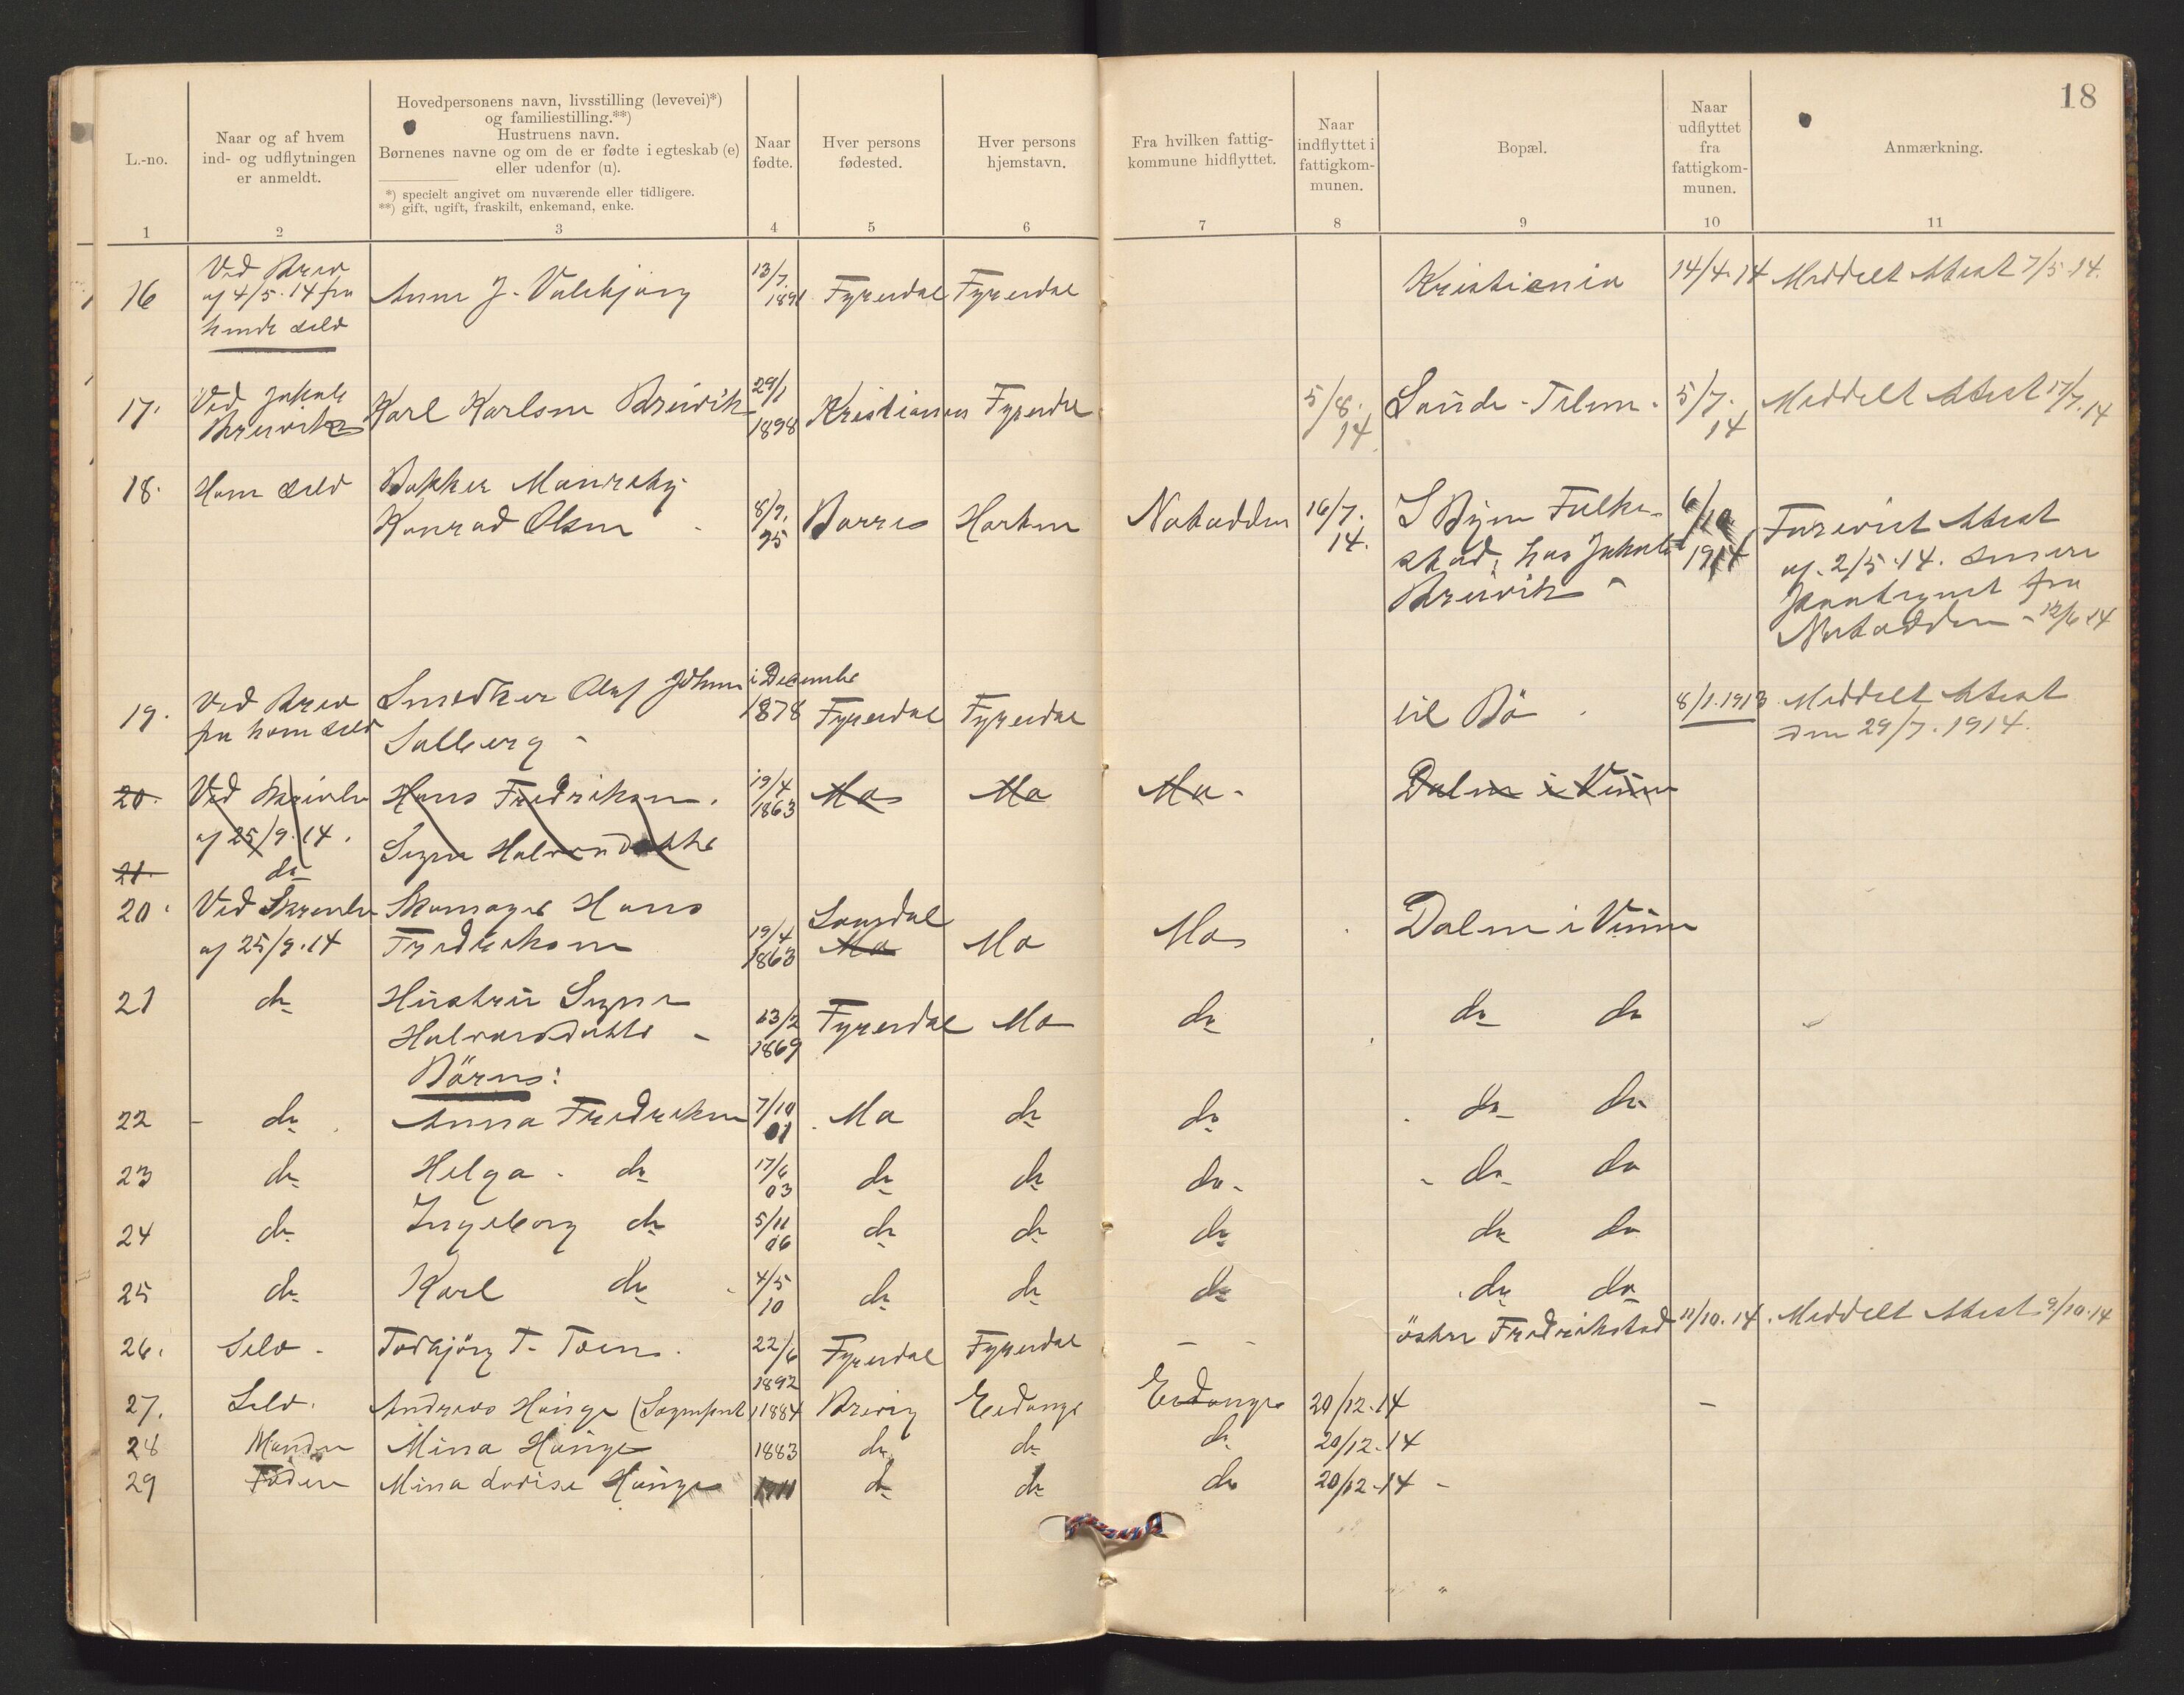 18
L.-no.
Naar og af hvem
ind- og udflytningen
er anmeldt.
Hovedpersonens navn, livsstilling (levevei)*)
og familiestilling.**)
Hustruens navn.
Børnenes navne og om de er fødte i egteskab (e)
eller udenfor (u).
*) specielt angivet om nuværende eller tidligere.
**) gift, ugift, fraskilt, enkemand, enke.
Naar
fødte.
Hver persons
fødested.
Hver persons
hjemstavn.
Fra hvilken fattig-
kommune hidflyttet.
Naar
indflyttet i
fattigkom-
munen.
Bopæl.
Naar
udflyttet
fra
fattigkom-
munen.
Anmærkning.
1 2 3 4 5 6 7 8 9 10 11
Ved Brev
16 af 4/5.14 fra Anne J. 13/7 1891 Fyresdal Fyresdal Kristiania 14/4.14 Meddelt Attest 7/5.14.
hende selv
17. Ved Jakob Karl Karlsen Breivik 29/1 1898 Kristiansen Fyresdal 5/8.14 5/7.14 Meddelt Attest 17/7.14
Breivik
18. Ham selv Bakker
Konrad Olsen 8/9.95 Borre Horten Notodden 16/7.14. 6/10 1914 Forevist Attest
stad, hos Jakob af 2/5.14.
Breivik fra
Notodden 12/6.14
19. Ved Brev Smedker Olaf i December
fra ham selv Solberg 1878 Fyresdal Fyresdal til Bö 8/1.1913 Meddelt Attest
den 29/7.1914.
20. Ved Skrivelse Hans Fredriksen. 19/4 1863 Mo Mo Mo Dalen i Vinje
af 25/9.14. Signe Halvorsdatter
21. do
20. Ved Skrivelse Skomager Hans Laurdal
af 25/9.14 Fredriksen 19/4 1863 Mo Mo Mo Dalen i Vinje
21 do Hustru Signe
Halvorsdatter 13/2 1869 Fyresdal Mo do do do
Börn:
22 do Anna Fredriksen 7/10 01 Mo do do do do
23 do Helga do 17/6 03 do do do do do
24 do Ingeborg do 5/11 06 do do do do do
25 do Karl do 4/5 10 do do do do do
26. Selv Torbjörg T. Toen 22/6 1892 Fyresdal Fyresdal östre Fredrikstad 11/10.14. Meddelt Attest 9/10.14
27. Selv. Andreas Hauge 1884 Brevig Eidanger Eidanger 20/12.14
28 Manden Mina Hauge 1883 do do do 20/12.14
29 Faderen Mina Lovise Hauge 1911 do do do 20/12.14